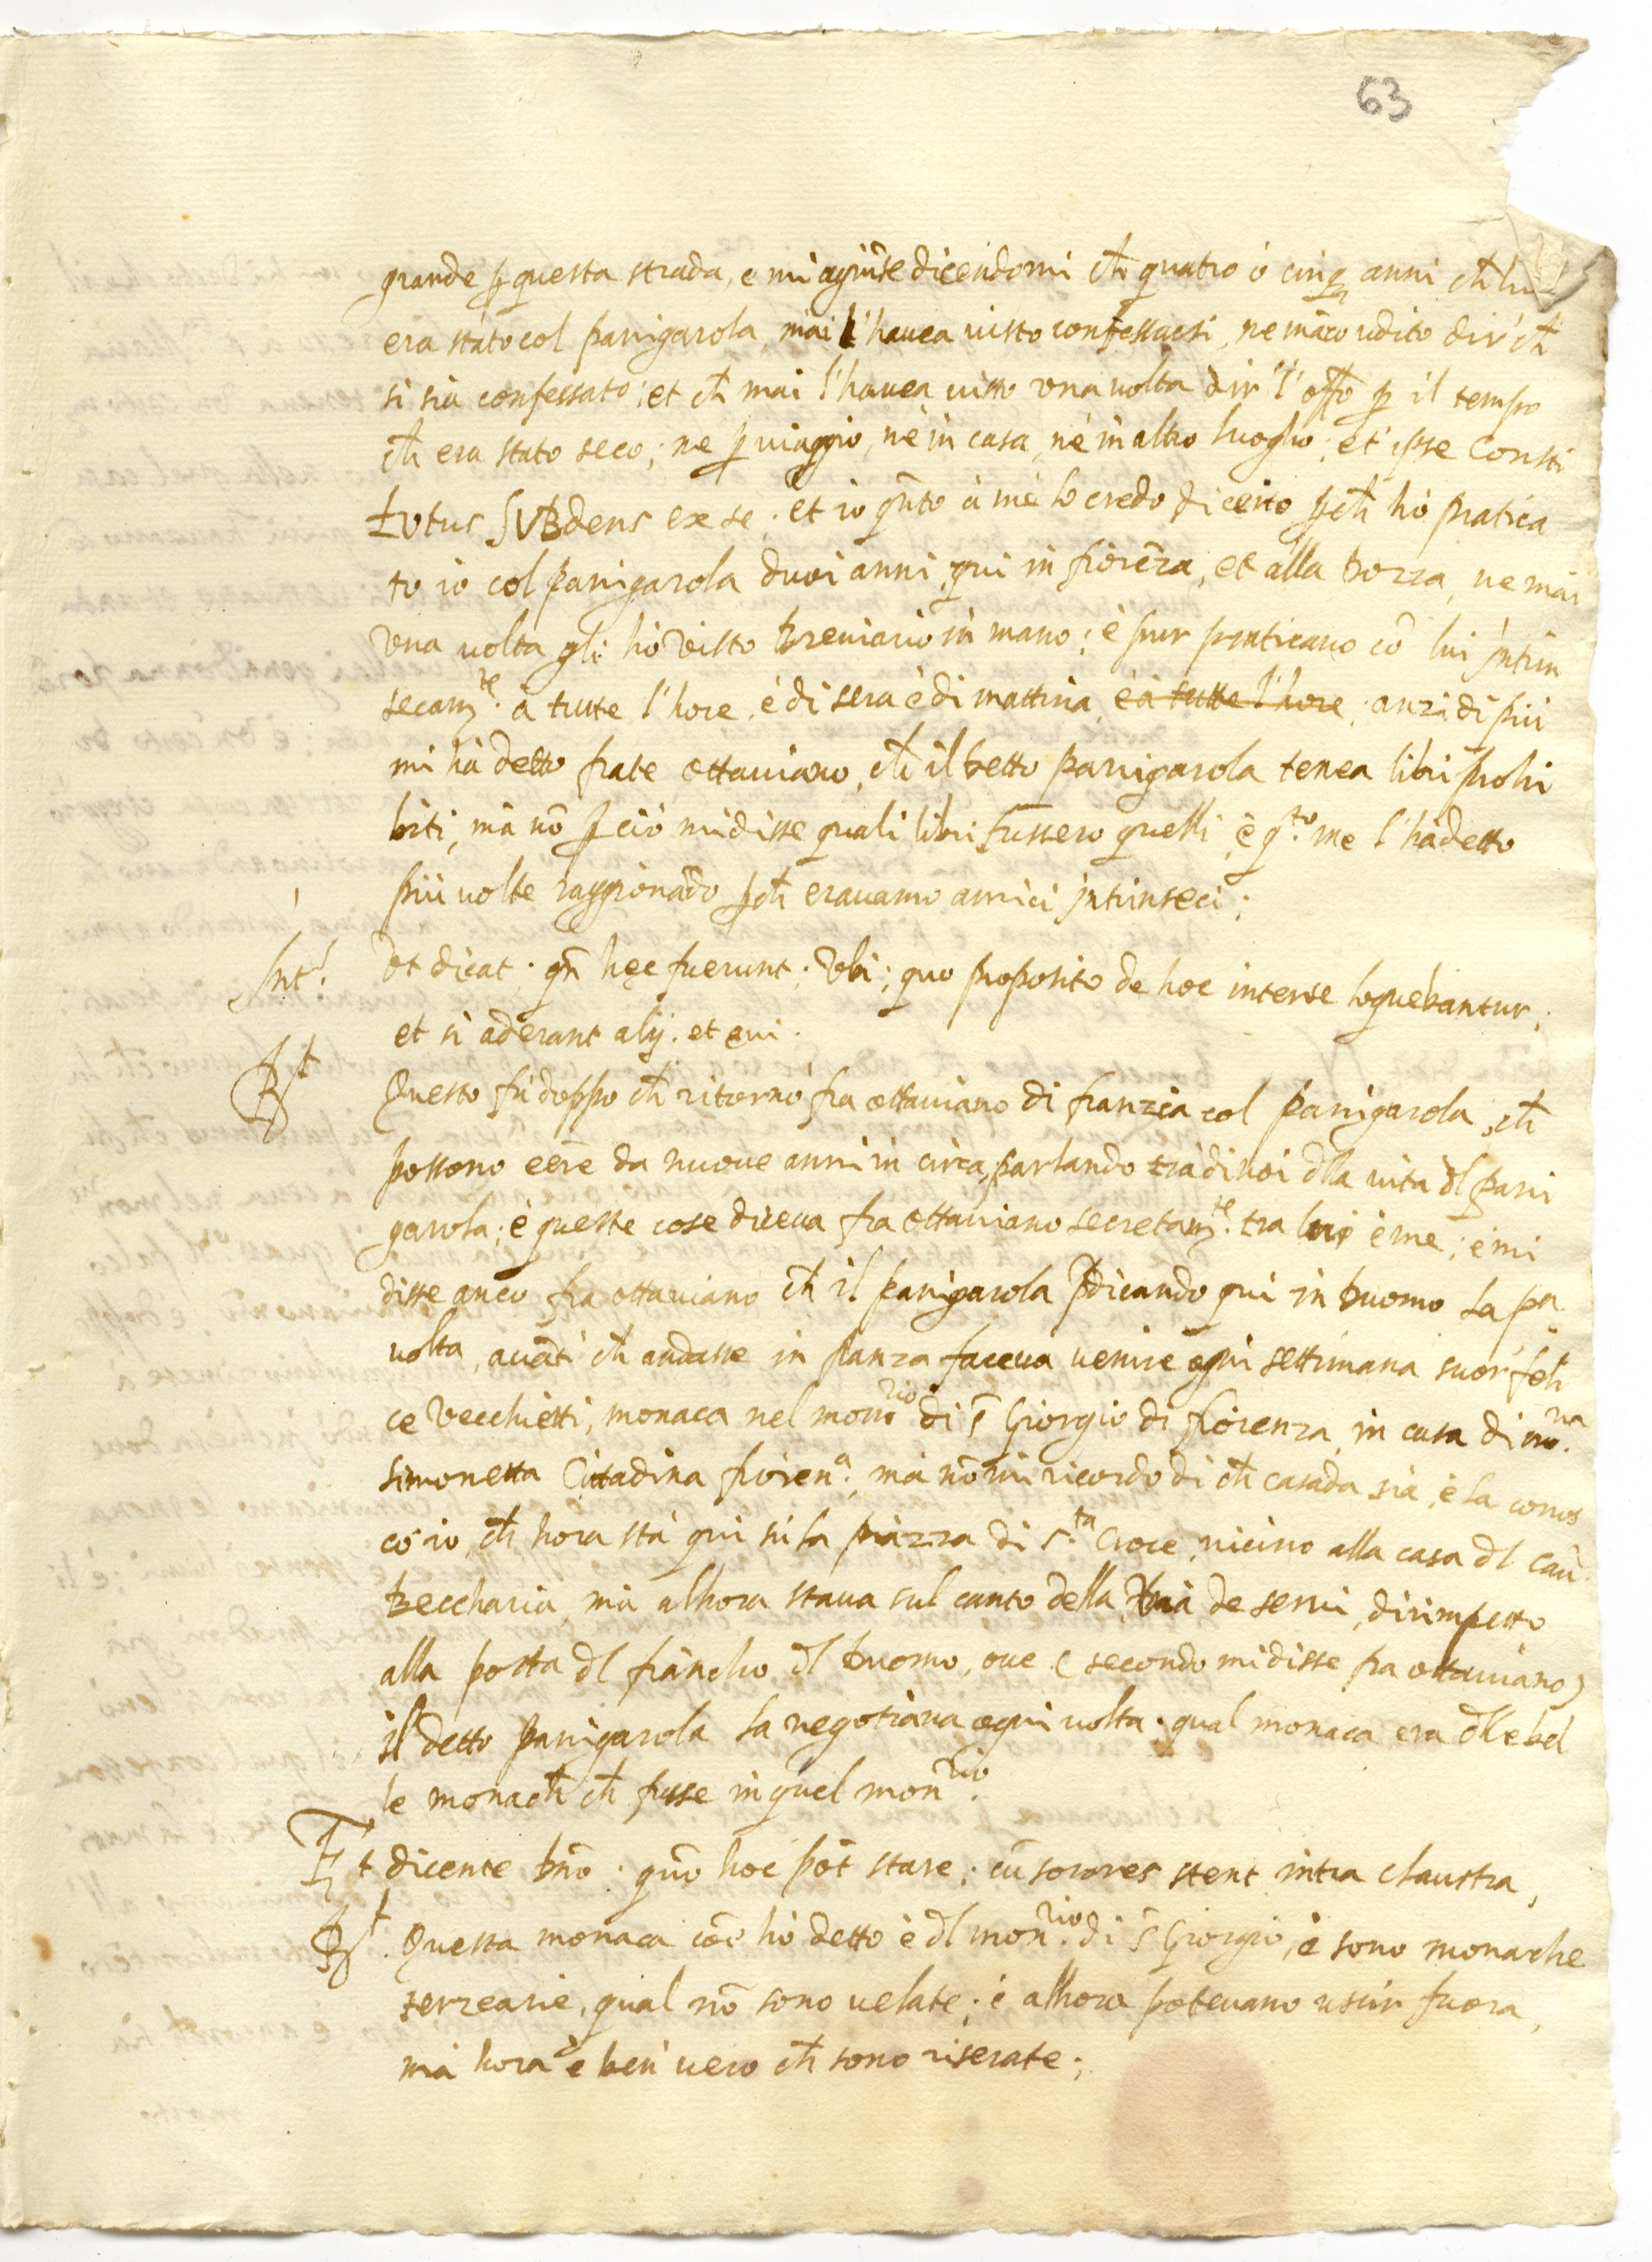 63
grande p questa strada, e mi agiũse dicendomi ch̃ quatro ò cinq; anni ch̃ lui
era stato col panigarola, mai l'hauea uisto confessarsi, ne mãco udito dir' ch̃
si sia confessato; et ch̃ mai l'hauea uisto una uolta dir' l'offõ p il tempo
ch̃ era stato seco; ne p uiaggio, nè in casa, nè in altro luogho; et ipse Consti
tutus SUBdens ex se. et io qñto à mè lo credo di certo pch̃ hò pratica
to io col panigarola duoi anni qui in fiorẽza, et alla bozza, ne mai
una uolta gli hò visto breuiario in mano; è pur praticauo cõ lui intrin
secam.te à tutte l'hore, è di sera è di mattina, è à tutte l'hore; anzi di più
mi hà detto frate ottauiano, ch̃ il detto panigarola tenea libri prohi
biti, mà nõ p ciò mi disse quali libri fussero quelli, è q.to me l'hà detto
più uolte raggionãdo pch̃ erauamo amici intrinseci;
Int.s Vt dicat. qñ hęc fuerunt; Vbi; quo proposito de hoc inter se loquebantur;
et si aderant alij. et qui.
R.t Questo fù doppo ch̃ ritornò fra ottauiano di franzia col panigarola, ch̃
possono eẽre da nuoue anni in circa, parlando trà di noi dlla uita dl pani
garola; è queste cose diceua fra ottauiano secretam.te tra lui è me; è mi
disse anco fra ottauiano ch̃ il panigarola pdicando qui in duomo la pa
uolta, auãti ch̃ andasse in franza faceua uenire ogni settimana suor' feli
ce Vecchietti, monaca nel mon.rio di S Giorgio di fiorenza, in casa di mo.na
simonetta Cittadina fioren.a; mà nõ mi ricordo di ch̃ casada sia, è la conos
cò io, ch̃ hora stà qui sù la piazza di S.ta Croce, uicino alla casa dl cau.
beccharia, mà alhora staua sul canto della via de serui, dirimpetto
alla porta dl fiancho dl duomo, oue (secondo mi disse fra ottauiano)
il detto panigarola la negotiaua ogni uolta. qual monaca era dlle bel
le monach̃ ch̃ fusse in quel mon.rio.
Et dicente dnõ. quõ hoc põt stare; cũ sorores stent intra claustra,
R.t Questa monaca cõe hò detto è dl mon.rio di S Giorgio, è sono monache
terzearie, qual nõ sono uelate; è alhora poteuano uscir fuora,
mà hora è ben' uero ch̃ sono riserate;